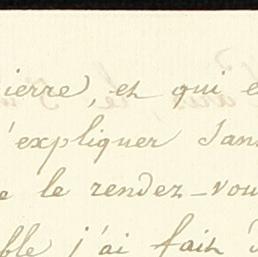 ierre, et qui e
'expliquer sans
e le rendez-vou
ble j'ai fait